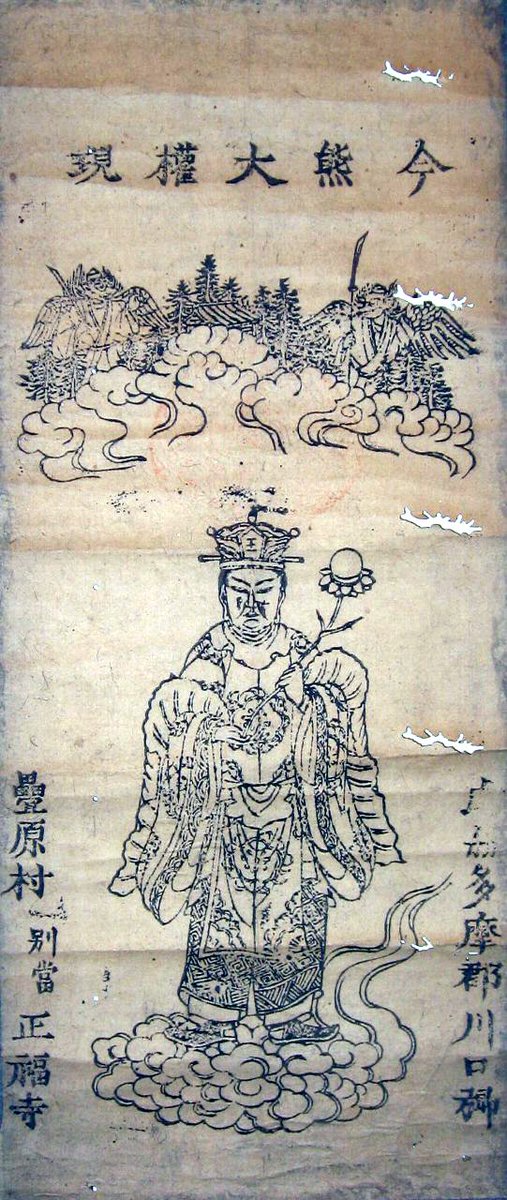 今熊大權現
多摩郡川口郷
疊原村 別當 正福寺
王